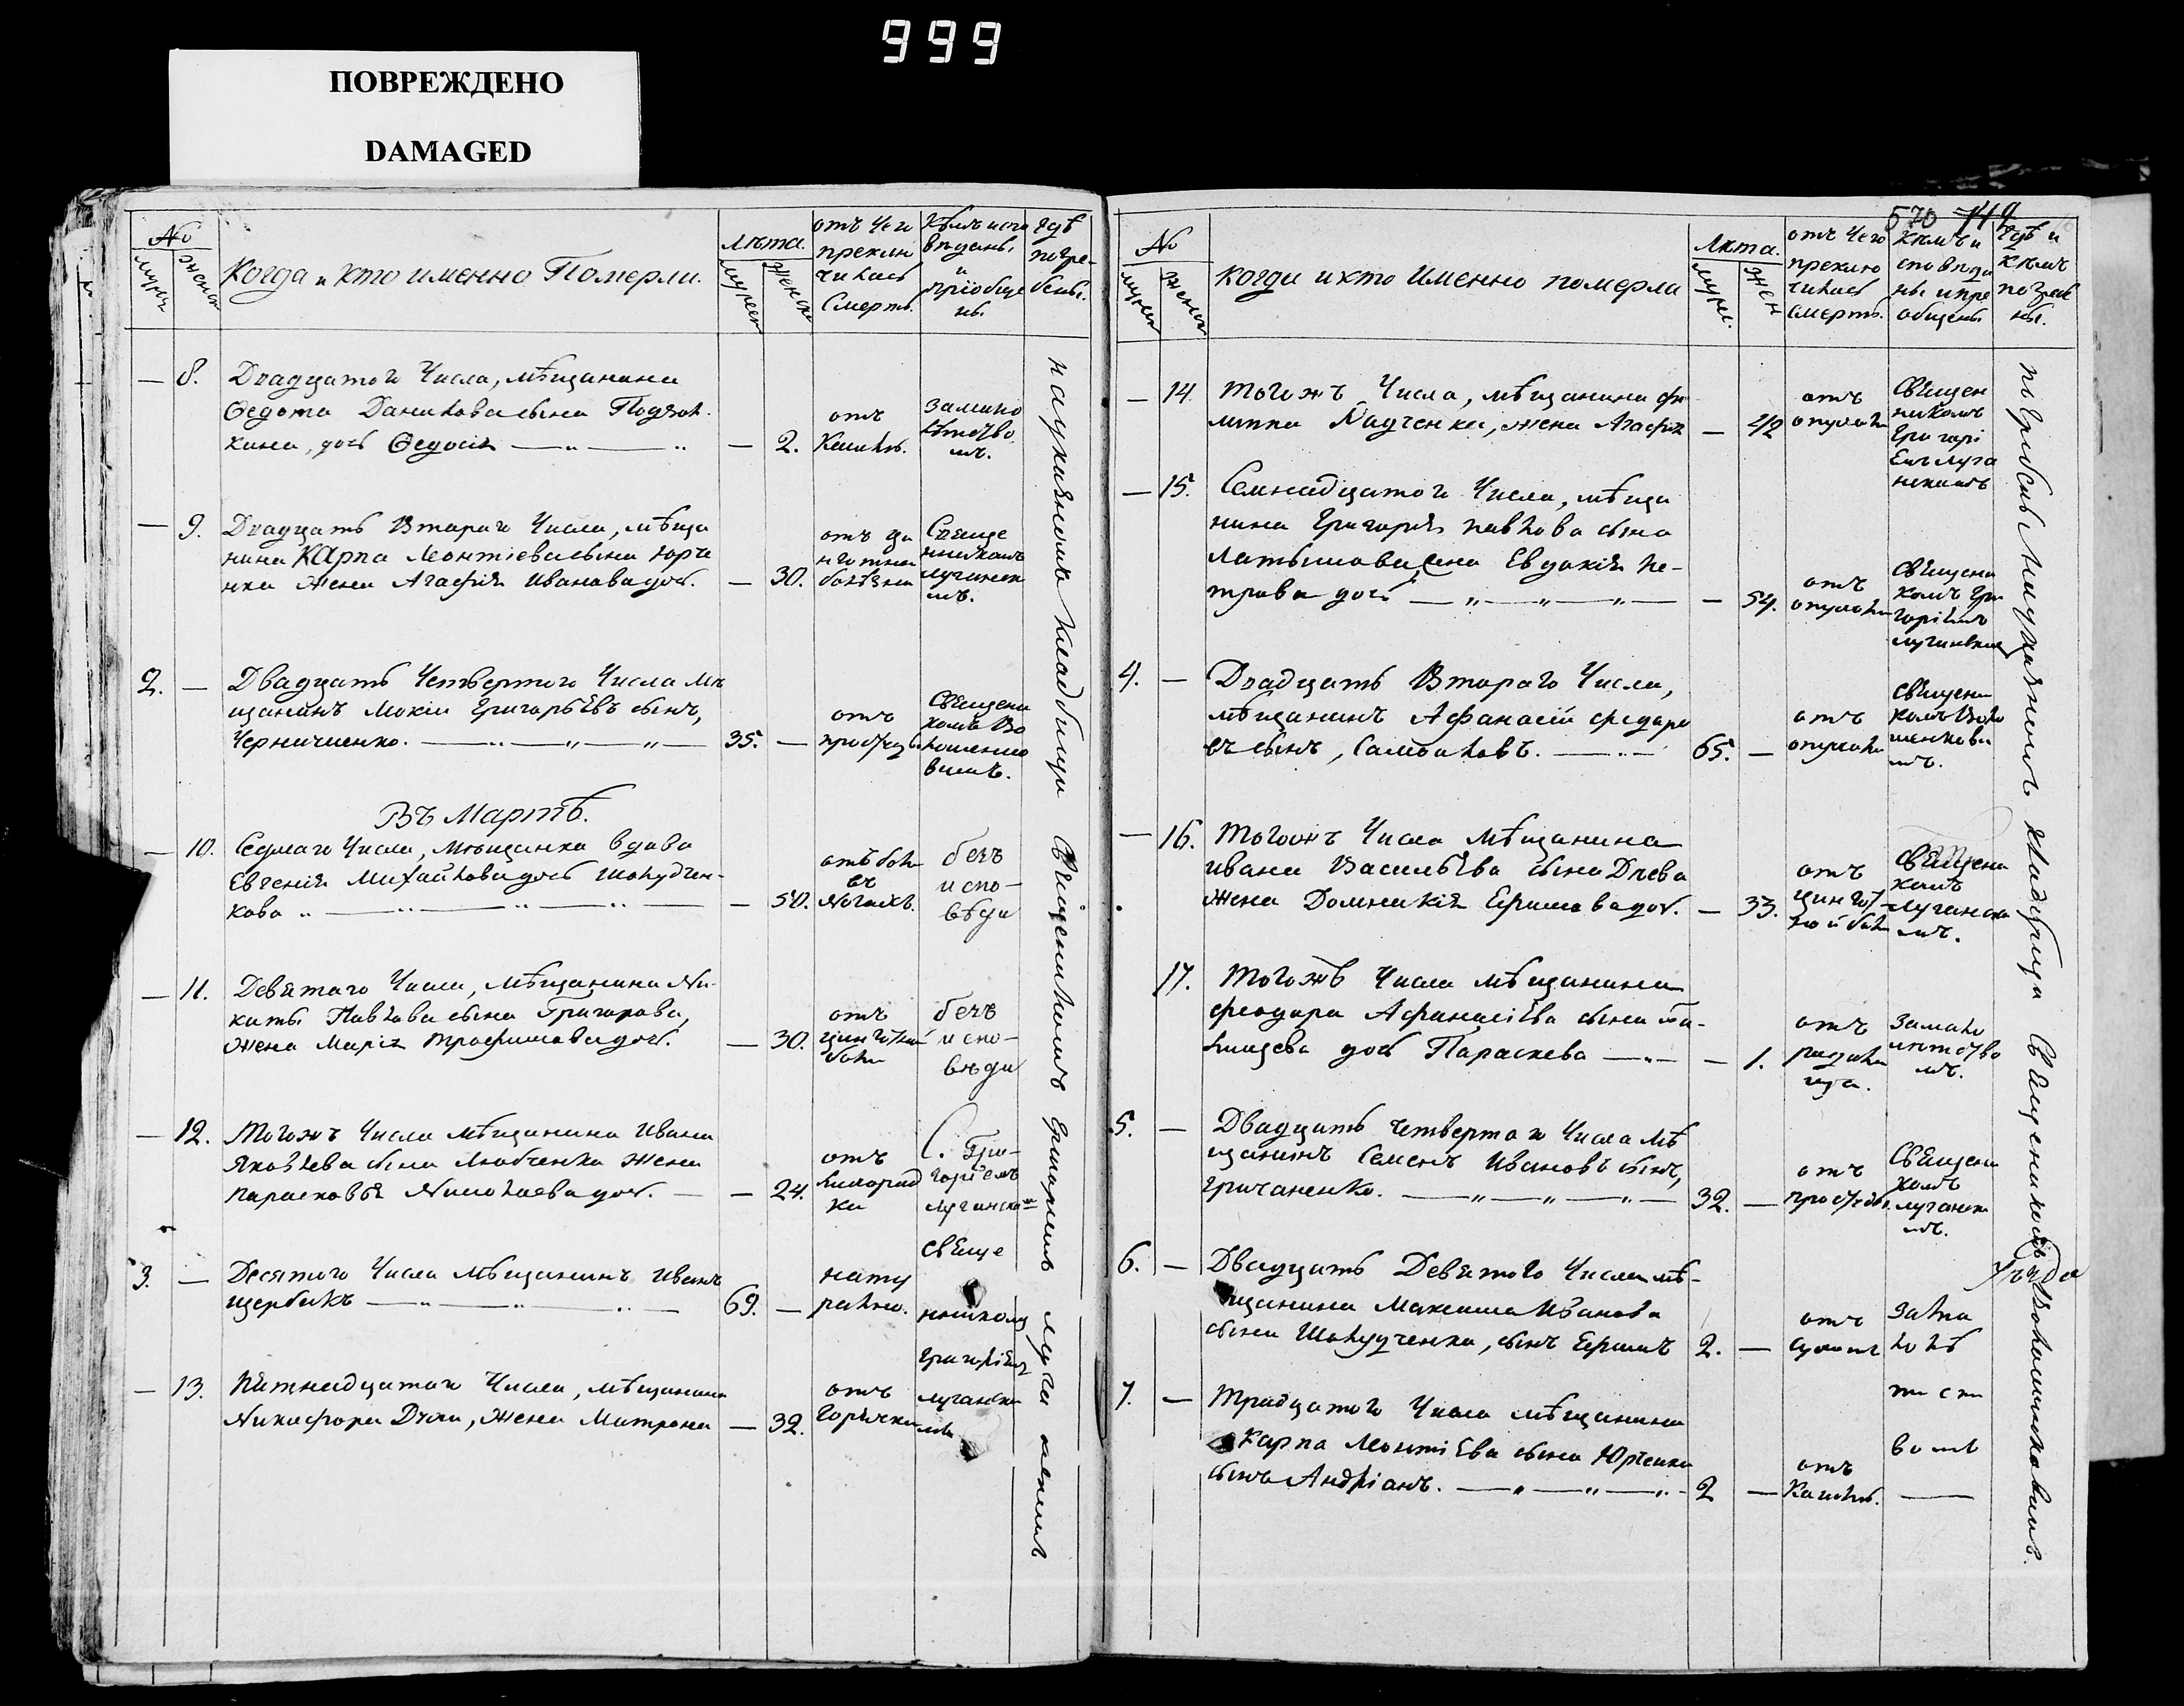 999
ПОВРЕЖДЕНО
DAMAGED
№
мужеск
женск
Когда и кто именно Померли.
Лѣта.
мужеск
женск
отъ Чего
приклю
чилась
Смерть.
Кѣмъ испо
вѣданы
и
пріобще
ны.
гдѣ
погре-
бены.
— 8. Двадцатого Числа, мѣщанина
Ѳедота Данилова сына
кина, дочь Ѳедосія — 2.
отъ
Кашля.
замало
лѣтство
мъ.
— 9. Двадцать Втораго Числа, мѣща
нина Карпа Леонтіева сына Юрче
нка Жена Агафія Иванова доч. — 30.
отъ ци
нготной
болѣзни
Свяще
нникомъ
Луганск
мъ.
2. — Двадцать Четвертого Числа мѣ
щанинъ Мокій Григорьевъ сынъ,
Черниченко. 35. —
отъ
простуды
Священи
комъ Во
лошино
вымъ.
Въ Мартѣ.
— 10. Седмаго Числа, мѣщанка вдова
Евгенія Михайлова дочь Шолудчен-
кова — 50.
отъ боли
въ
ногахъ.
безъ
испо-
вѣди
— 11. Девятаго Числа, мѣщанина Ни-
киты Павлова сына Григорова,
Жена Марія Трофимова доч. — 30.
отъ
цинготной
боли
безъ
испо-
вѣди
— 12. Тогожъ Числа мѣщанина Ивана
Яковлева сына Любченка Жена
Парасковья Николаева доч. — 24.
отъ
лихорад
ки
С. Гри-
горіемъ
Луганским
3. — Десятого Числа Мѣщанинъ Иванъ
Щербакъ 69. —
нату
рально.
свяще
нникомъ
Григоріемъ
Луганским
— 13. Пятнадцатого Числа, мѣщанина
Никифора Дуки, Жена Матрона — 32.
отъ
Горячки
на кладбищи Священникомъ Григоріемъ Луганскимъ
570 719
№
мужеск
женск
когда и кто Именно померли
Лѣта.
мужес.
жен
отъ Чего
приклю
чилась
Смерть.
Кѣмъ и
сповѣда
ны и прі
общены
Гдѣ и
кѣмъ
погреб
ны.
— 14. Тогожъ Числа, мѣщанина Фи
липпа Радченка, жена Агафія — 42
отъ
опухоли
Священ
никомъ
Григорі
емъ Луга
нскимъ
— 15. Семнадцатого Числа, мѣща
нина Григорія Павлова сына
Латышова жена Евдокія Пе-
трова доч — 54.
отъ
опухоли
Священи
комъ Гри
горіемъ
Луганским
4. — Двадцать Втораго Числа,
мѣщанинъ Афанасій Федоро
въ сынъ, Самойловъ. 65. —
отъ
опухоли
Священи
комъ Воло
шиновы
мъ.
— 16. Тогожъ Числа Мѣщанина
Ивана Васильева сына Дуева
Жена Домникія Ермова доч. — 33.
отъ
цингот
ной боли
Священи
комъ
Лугански
мъ.
17. Тогожъ Числа мѣщанина
Феодора Афанасіева сына
дочь Параскева — 1.
отъ
замало
лѣтство
мъ.
5. — Двадцать четвертого Числа мѣ
щанинъ Семенъ Ивановъ сынъ,
Гричаненко. 32. —
отъ
простуды
Священи
комъ
Луганск
мъ.
6. — Двадцать Девятого Числа мѣ-
щанина Максима Иванова
сына Шолудченка, сынъ Ермилъ 2. —
отъ
сухоты
7. — Тридцатого Числа мѣщанина
Карпа Леонтіева сына Юрченка
сынъ Андріанъ. 2 —
отъ
Кашля.
погребены на кладбищи Священникомъ Волошиновымъ.